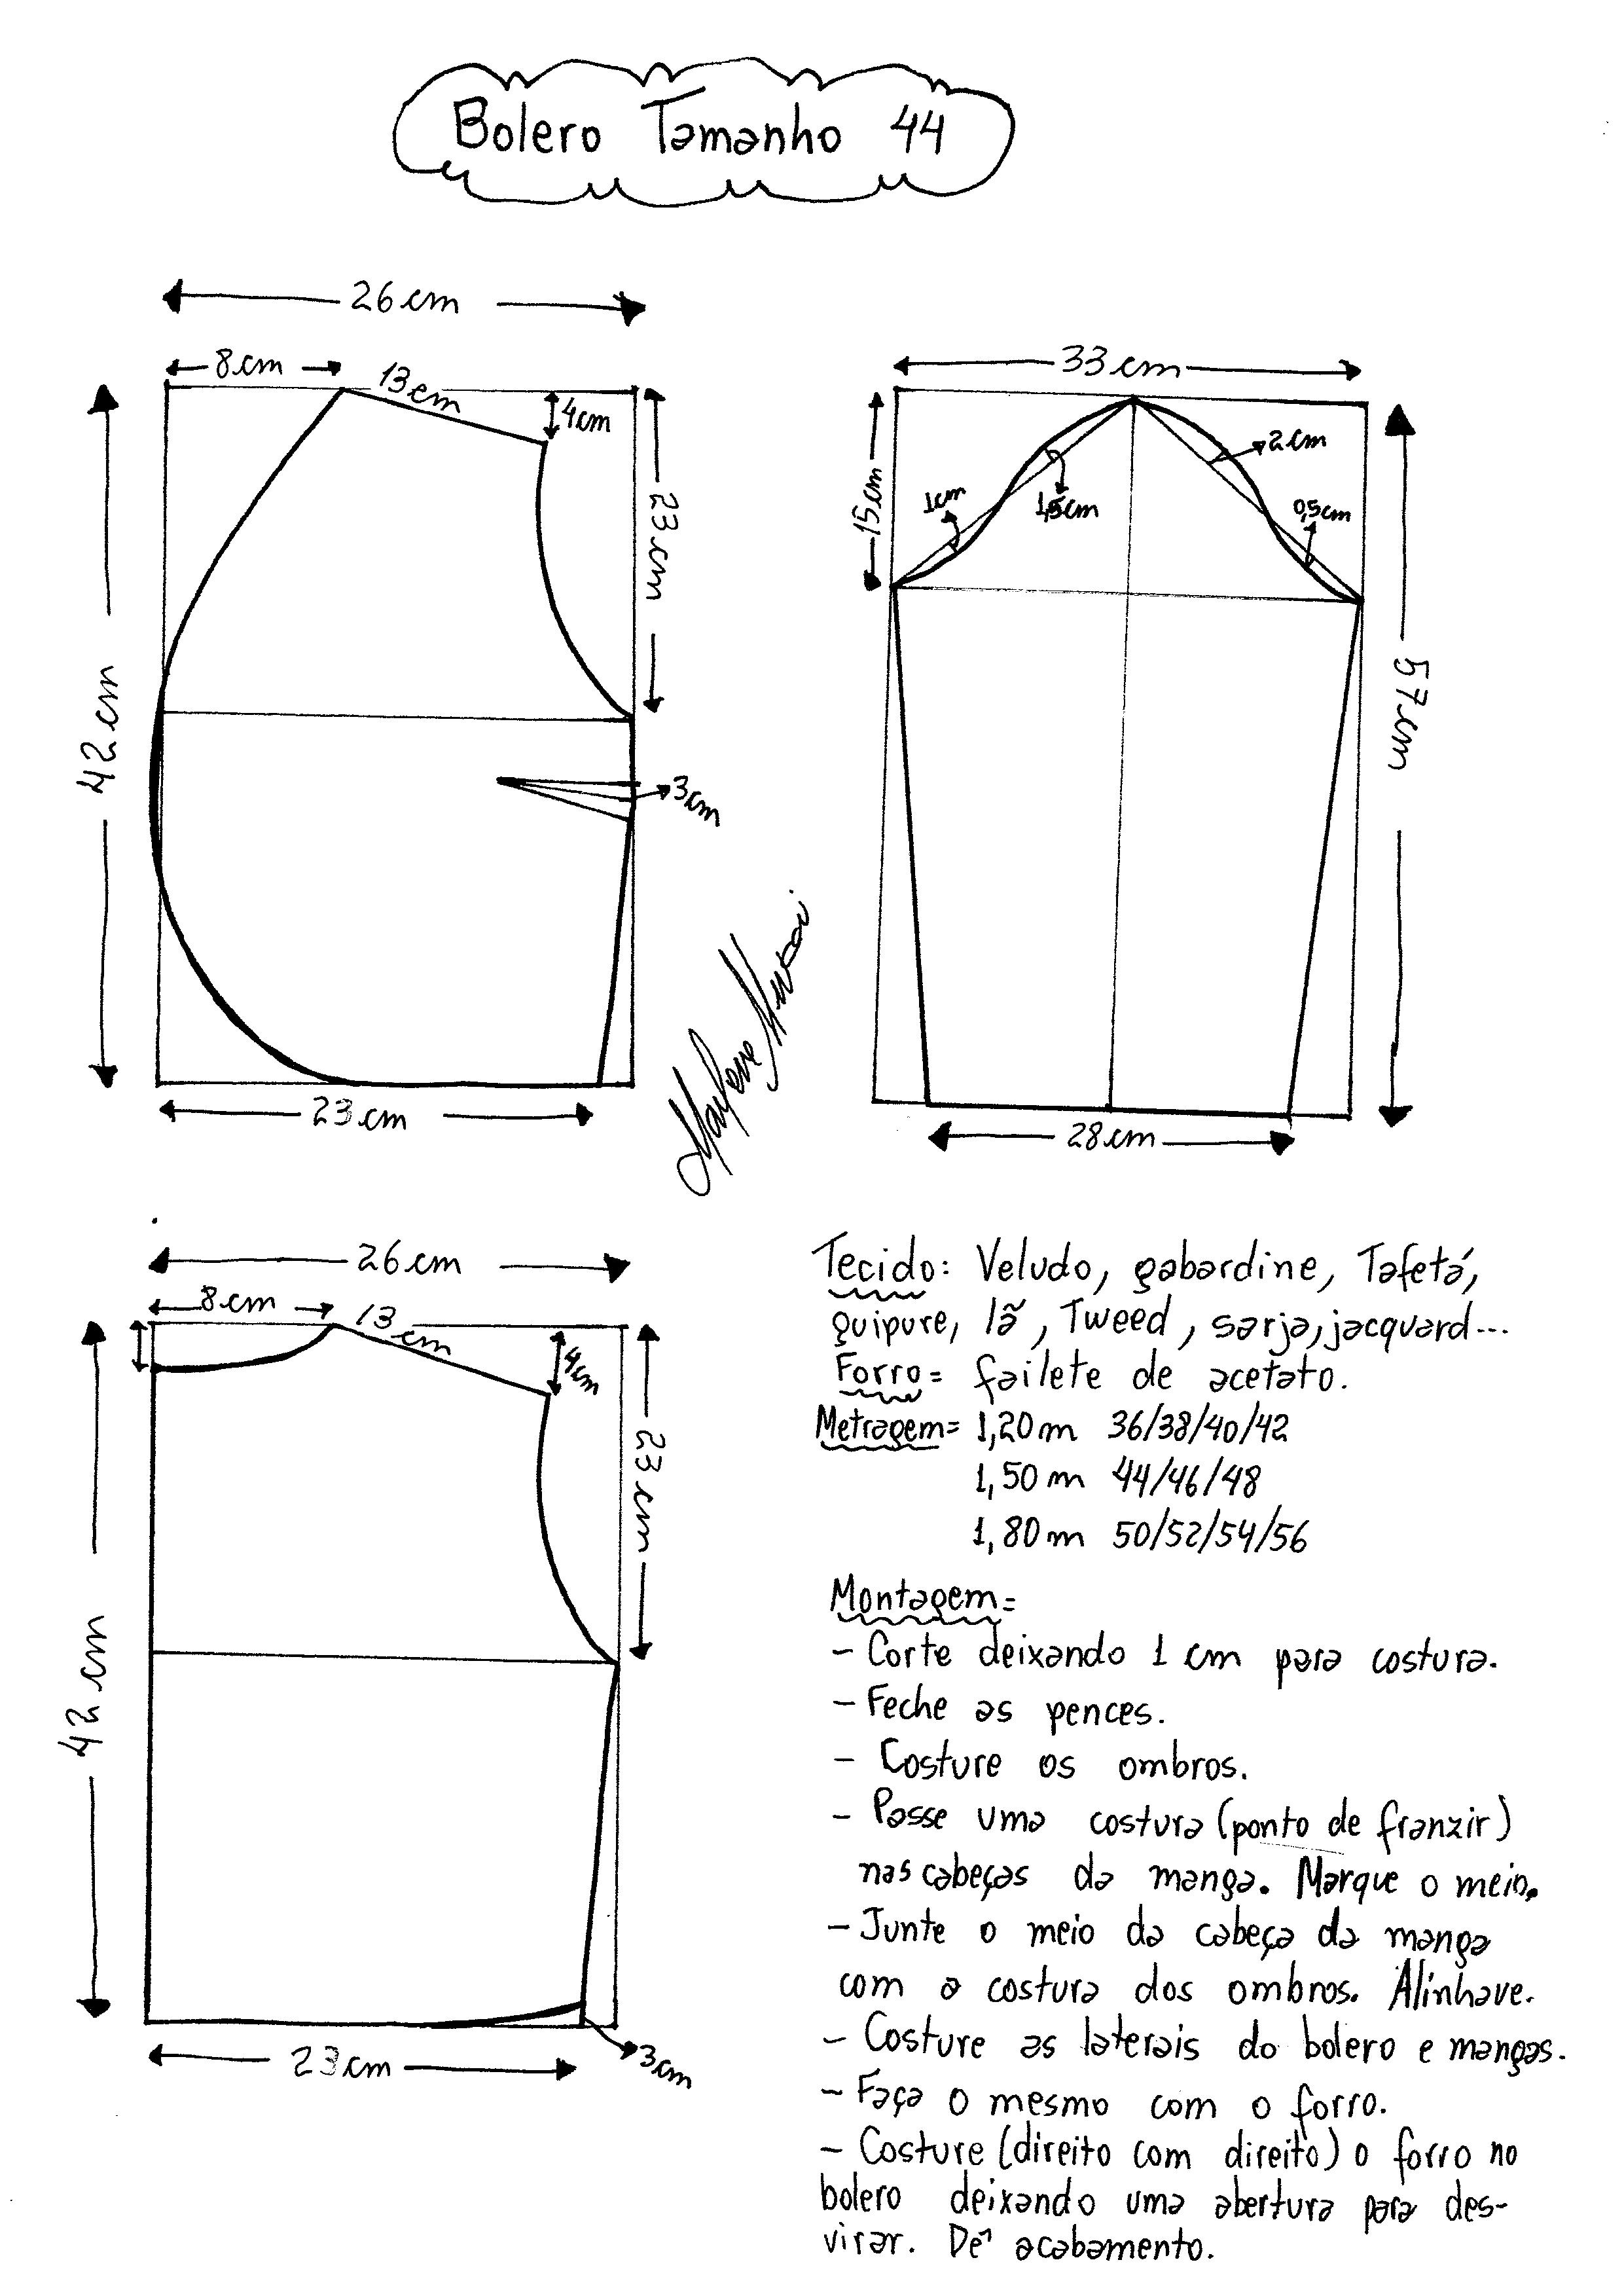 Bolero Tamanho 44
26cm
8cm
13cm
4cm
23cm
42cm
3cm
23cm
33cm
15cm
1cm
1,5cm
2cm
0,5cm
57cm
28cm
26cm
8cm
13cm
4cm
23cm
42cm
23cm
3cm
Tecido: Veludo, gabardine, Tafetá,
guipure, lã, Tweed, sarja, jacquard...
Forro= failete de acetato.
Metragem= 1,20m 36/38/40/42
1,50m 44/46/48
1,80m 50/52/54/56
Montagem=
- Corte deixando 1 cm para costura.
- Feche as pences.
- Costure os ombros.
- Passe uma costura (ponto de franzir)
nas cabeças da manga. Marque o meio.
- Junte o meio da cabeça da manga
com a costura dos ombros. Alinhave.
- Costure as laterais do bolero e mangas.
- Faça o mesmo com o forro.
- Costure (direito com direito) o forro no
bolero deixando uma abertura para des-
virar. Dê acabamento.